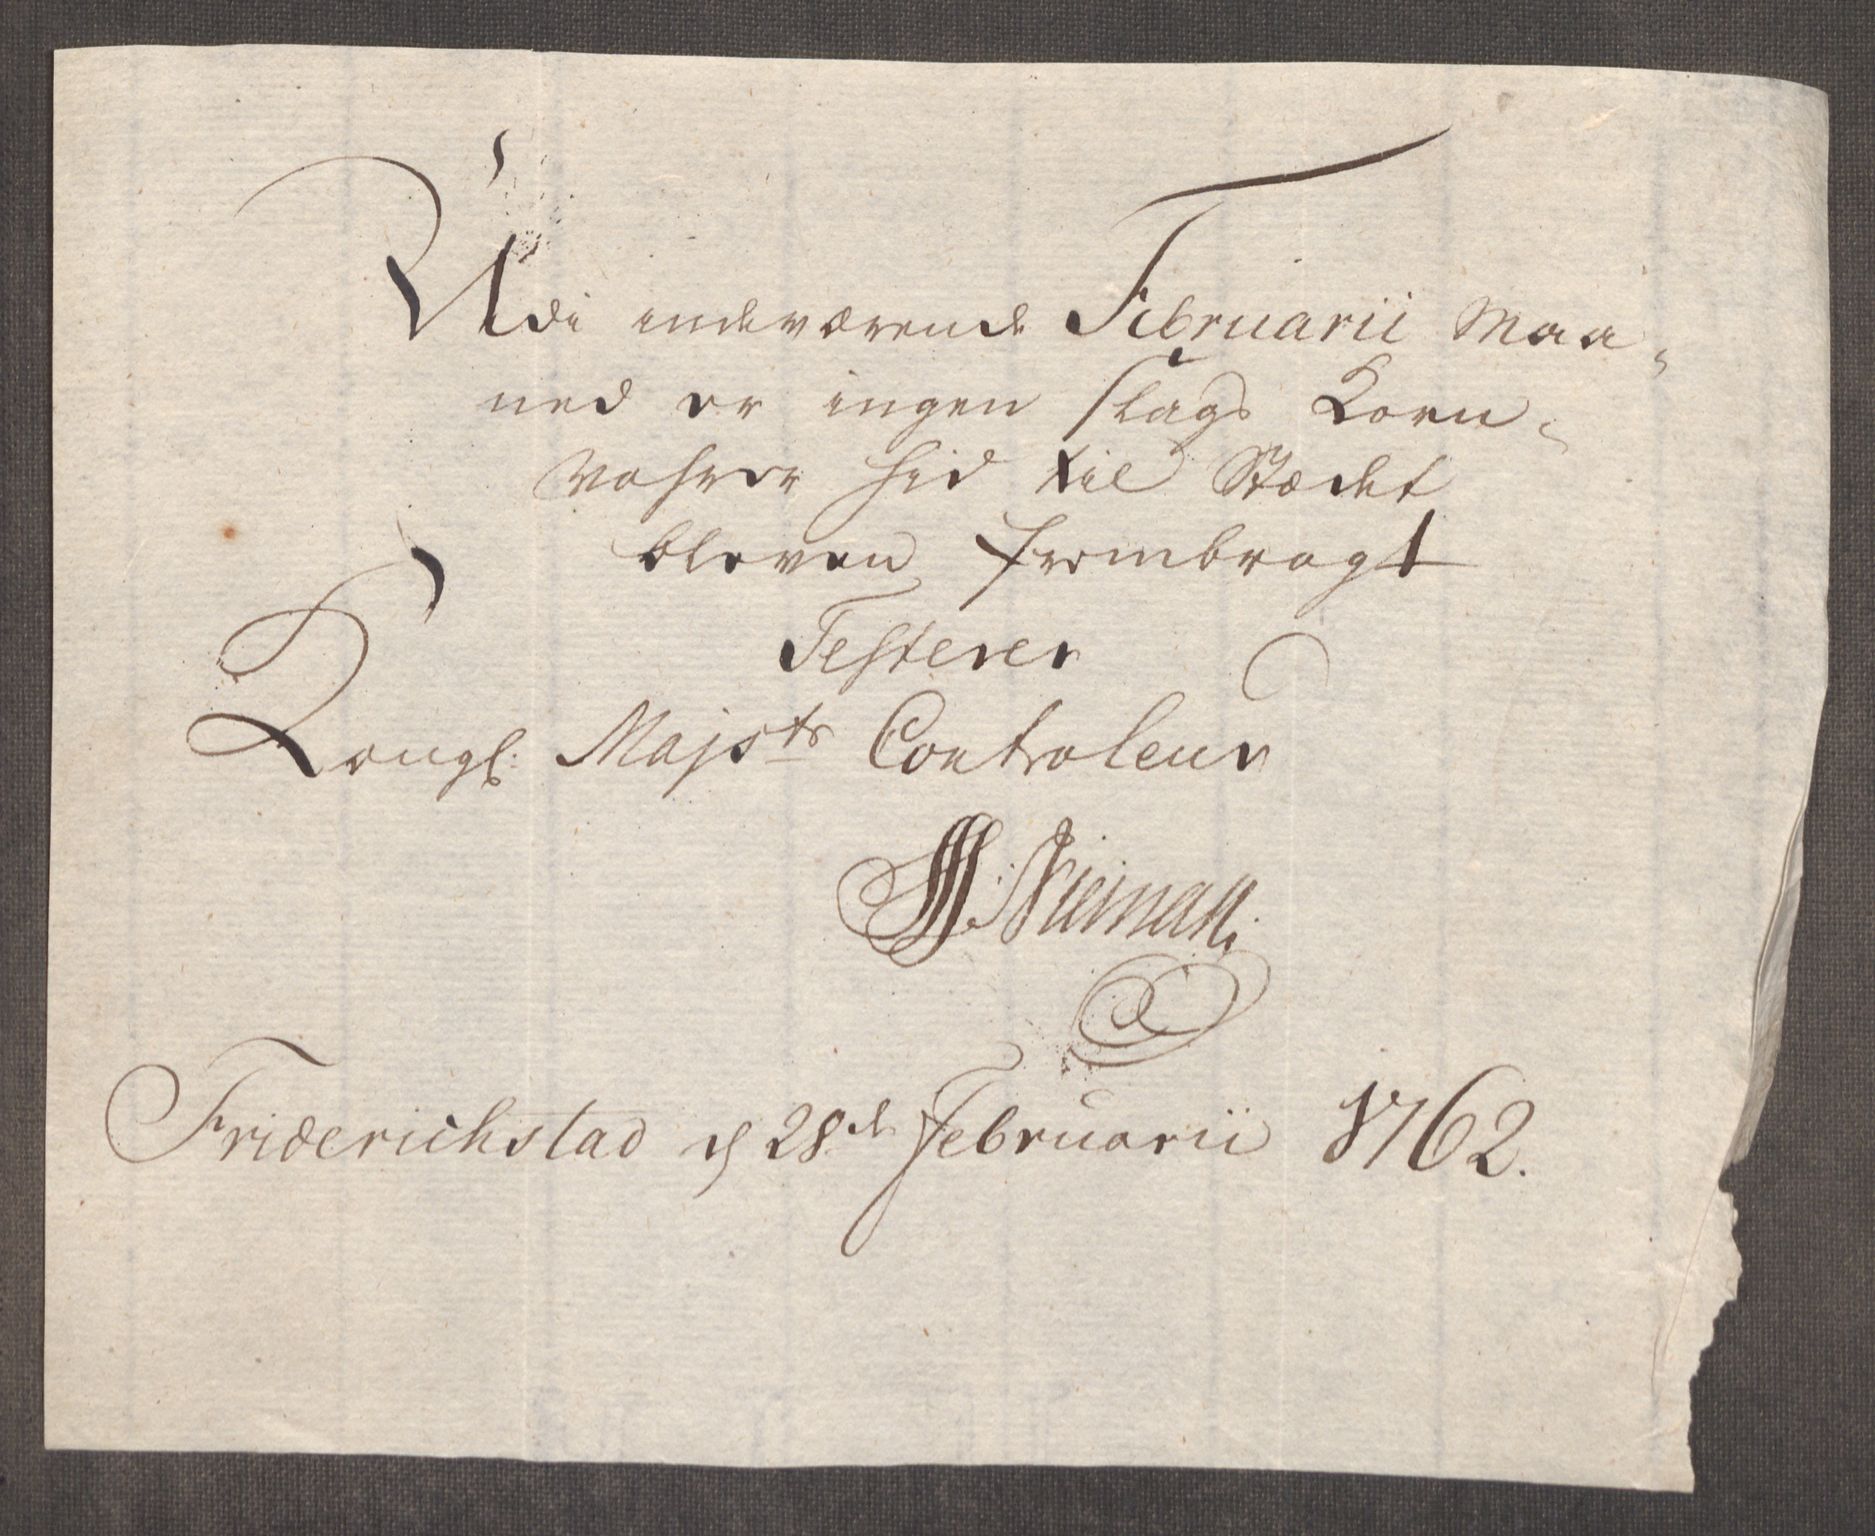 Udi indeværende Februarii Maa-
ned er ingen slags Korn-
Vahrer hid til Stædet
bleven frembragt
Testerer
Kongl: Majsts Controleur
Nieman.
Friderichstad d 28de Februarii 1762.